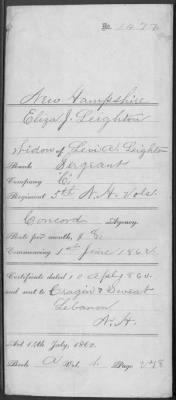 No.
New Hampshire
Eliza J. Leighton
Widow of Levi A. Leighton
Rank Sergeant
Company "C"
Regiment 5th N.H. Vols.
Concord Agency.
Rate per month, $8.
Commencing 1st June 1862.
Certificate dated 10 April 186
and sent to Cragin & Sweat
Lebanon
N.H.
Act 14th July, 1862.
Book A Vol. 1. Page